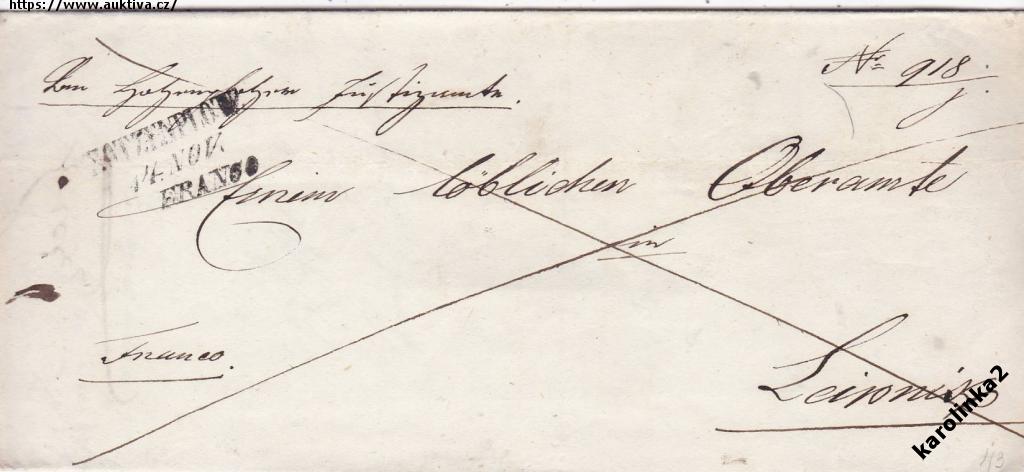 https://www.auktiva.cz/
Nº 918.
Justizamte.
HOTZENPLOTZ
14. NOV.
FRANCO
Einem löblichen Oberamte
in
Franco.
Leipnik
karolinka2